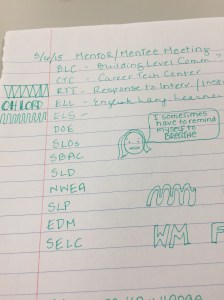 5/12/15 Mentor/Mentee Meeting
BLC - Building Level Comm
CTC - Career Tech Center
RTI - Response to Interv./
ELL - English Lang. Learner
OH LORD
ELS -
DOE
I sometimes
have to remind
myself to
BREATHE
SLOs
SBAC
SLD
NWEA
SLP
EDM
WM F
SELC